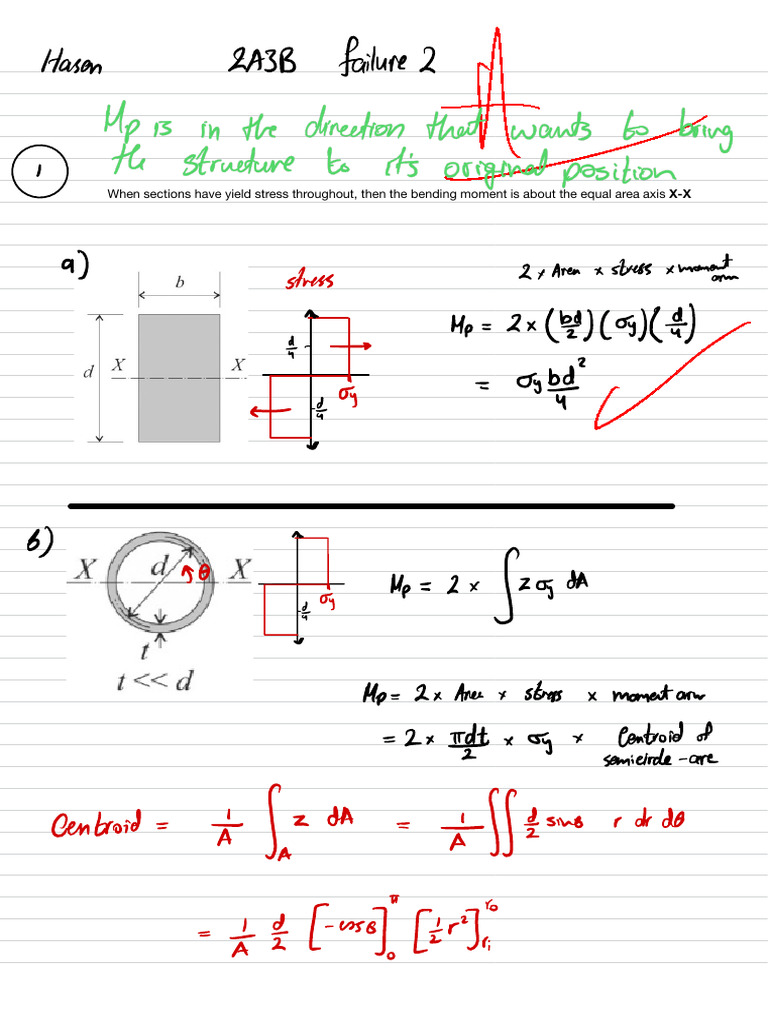 Hasan 2A3B failure 2
Mp is in the direction that wants to bring
the structure to it's original position
1
When sections have yield stress throughout, then the bending moment is about the equal area axis X-X
a)
b
d
X X
stress
d/4
σy
d/4
2 × Area × stress × moment arm
Mp = 2 × (bd/2) (σy) (d/4)
= σy bd²/4
b)
X d θ X
t
t << d
σy
d/4
Mp = 2 × ∫ z σy dA
Mp = 2 × Area × stress × moment arm
= 2 × πdt/2 × σy × Centroid of
semicircle-arc
Centroid = 1/A ∫_A z dA = 1/A ∫∫ d/2 sinθ r dr dθ
= 1/A d/2 [-cosθ]_0^π [1/2 r²]_ri^ro